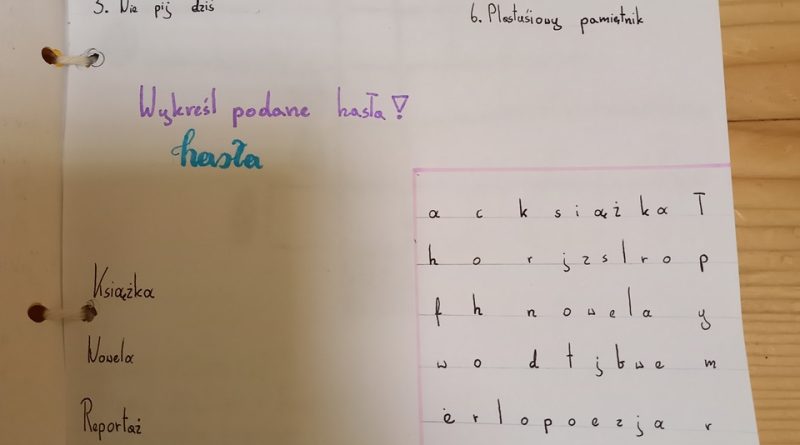 5. Nie pij dziś
6. Plastuśiowy pamiętnik
Wykreśl podane hasła!
hasła
a c k s i ą ż k a T
h o r j z s l r o p
Książka
f h n o w e l a y
Nowela
w o d t j b w e m
Reportaż
e r l o p o e z j a r